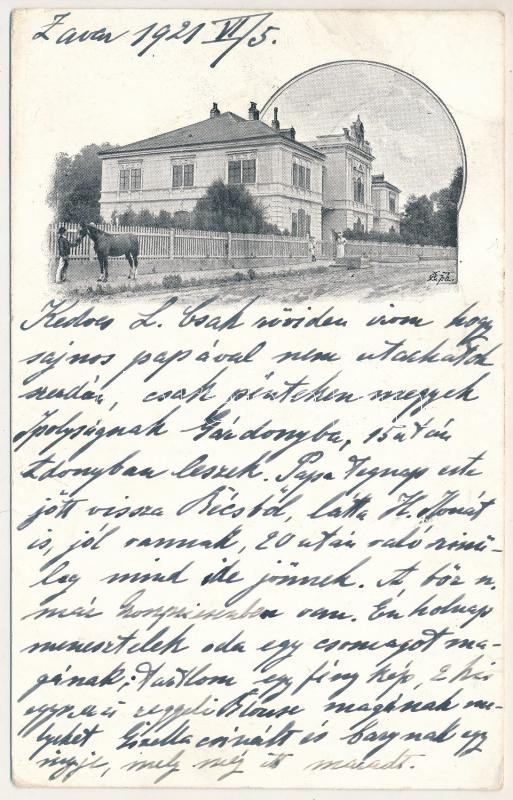 Zavar 1921 VI/5.
Kedves L. Csak röviden irom hogy
sajnos papával nem utazhatok
szerdán, csak pénteken megyek
Ipolyságnak Gárdonyba, 15 után
Zdonyban leszek. Papa tegnap este
jött vissza Bécsből, látta H. Ilonát
is, jól vannak, 20 után valószinü-
leg mind ide jönnek. A
már van. Én holnap
menesztelek oda egy csomagot ma-
gának; Tartlom egy fény kép, 2 kis
reggeli Blouse magának me-
lyeket Gizella csinált és egy
inge, mely még itt maradt.